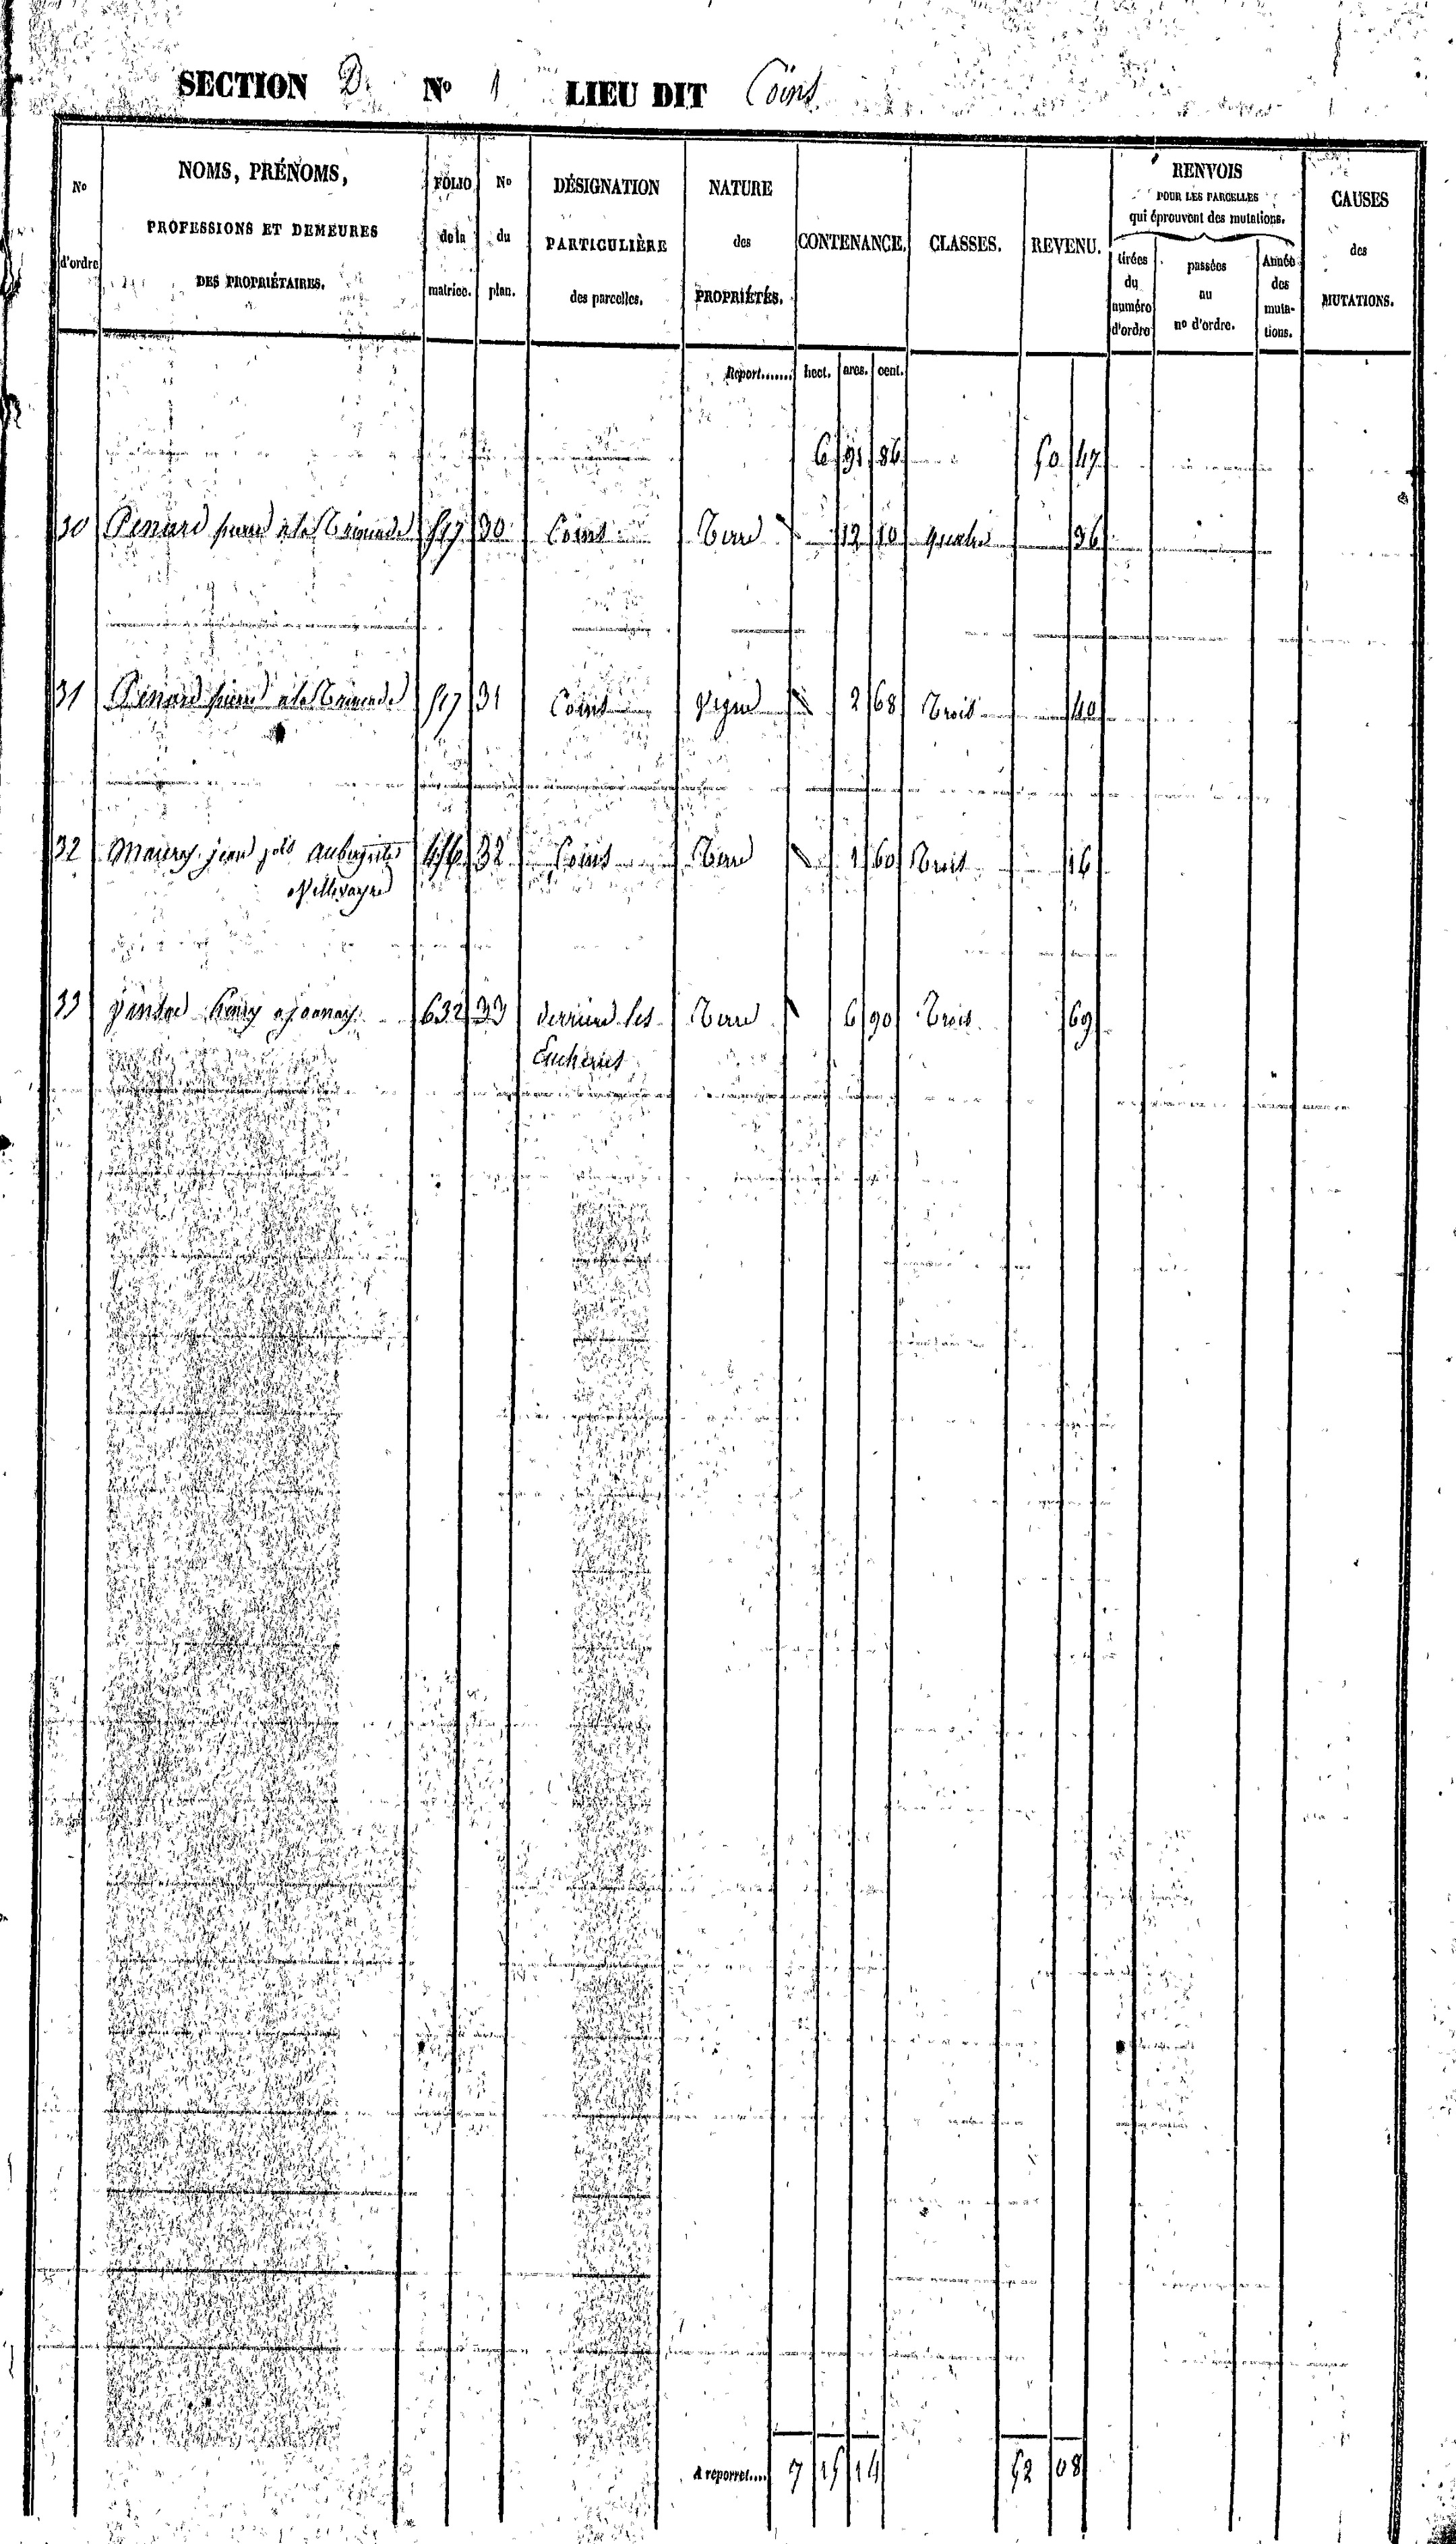 SECTION D. N° 1 LIEU DIT Coins
N° d'ordre
NOMS, PRÉNOMS,
PROFESSIONS ET DEMEURES
DES PROPRIÉTAIRES.
FOLIO de la matrice.
N° du plan.
DÉSIGNATION
PARTICULIÈRE
des parcelles.
NATURE
des
PROPRIÉTÉS.
CONTENANCE.
CLASSES.
REVENU.
RENVOIS
POUR LES PARCELLES
qui éprouvent des mutations.
tirées du numéro d'ordre
passées au n° d'ordre.
Année des muta-tions.
CAUSES
des
MUTATIONS.
Report....... hect. ares. cent.
6 91 86 50 47
30 Penard pierre à la 517 30 Coins Terre 12 10 quatre 36
31 Penard pierre à la 517 31 Coins Vigne 2 68 Trois 40
32 jean 32 Coins Terre 1 60 Trois 16
33 633 33 derriere les Terre 6 90 Trois 69
A reporter.... 7 15 14 52 08